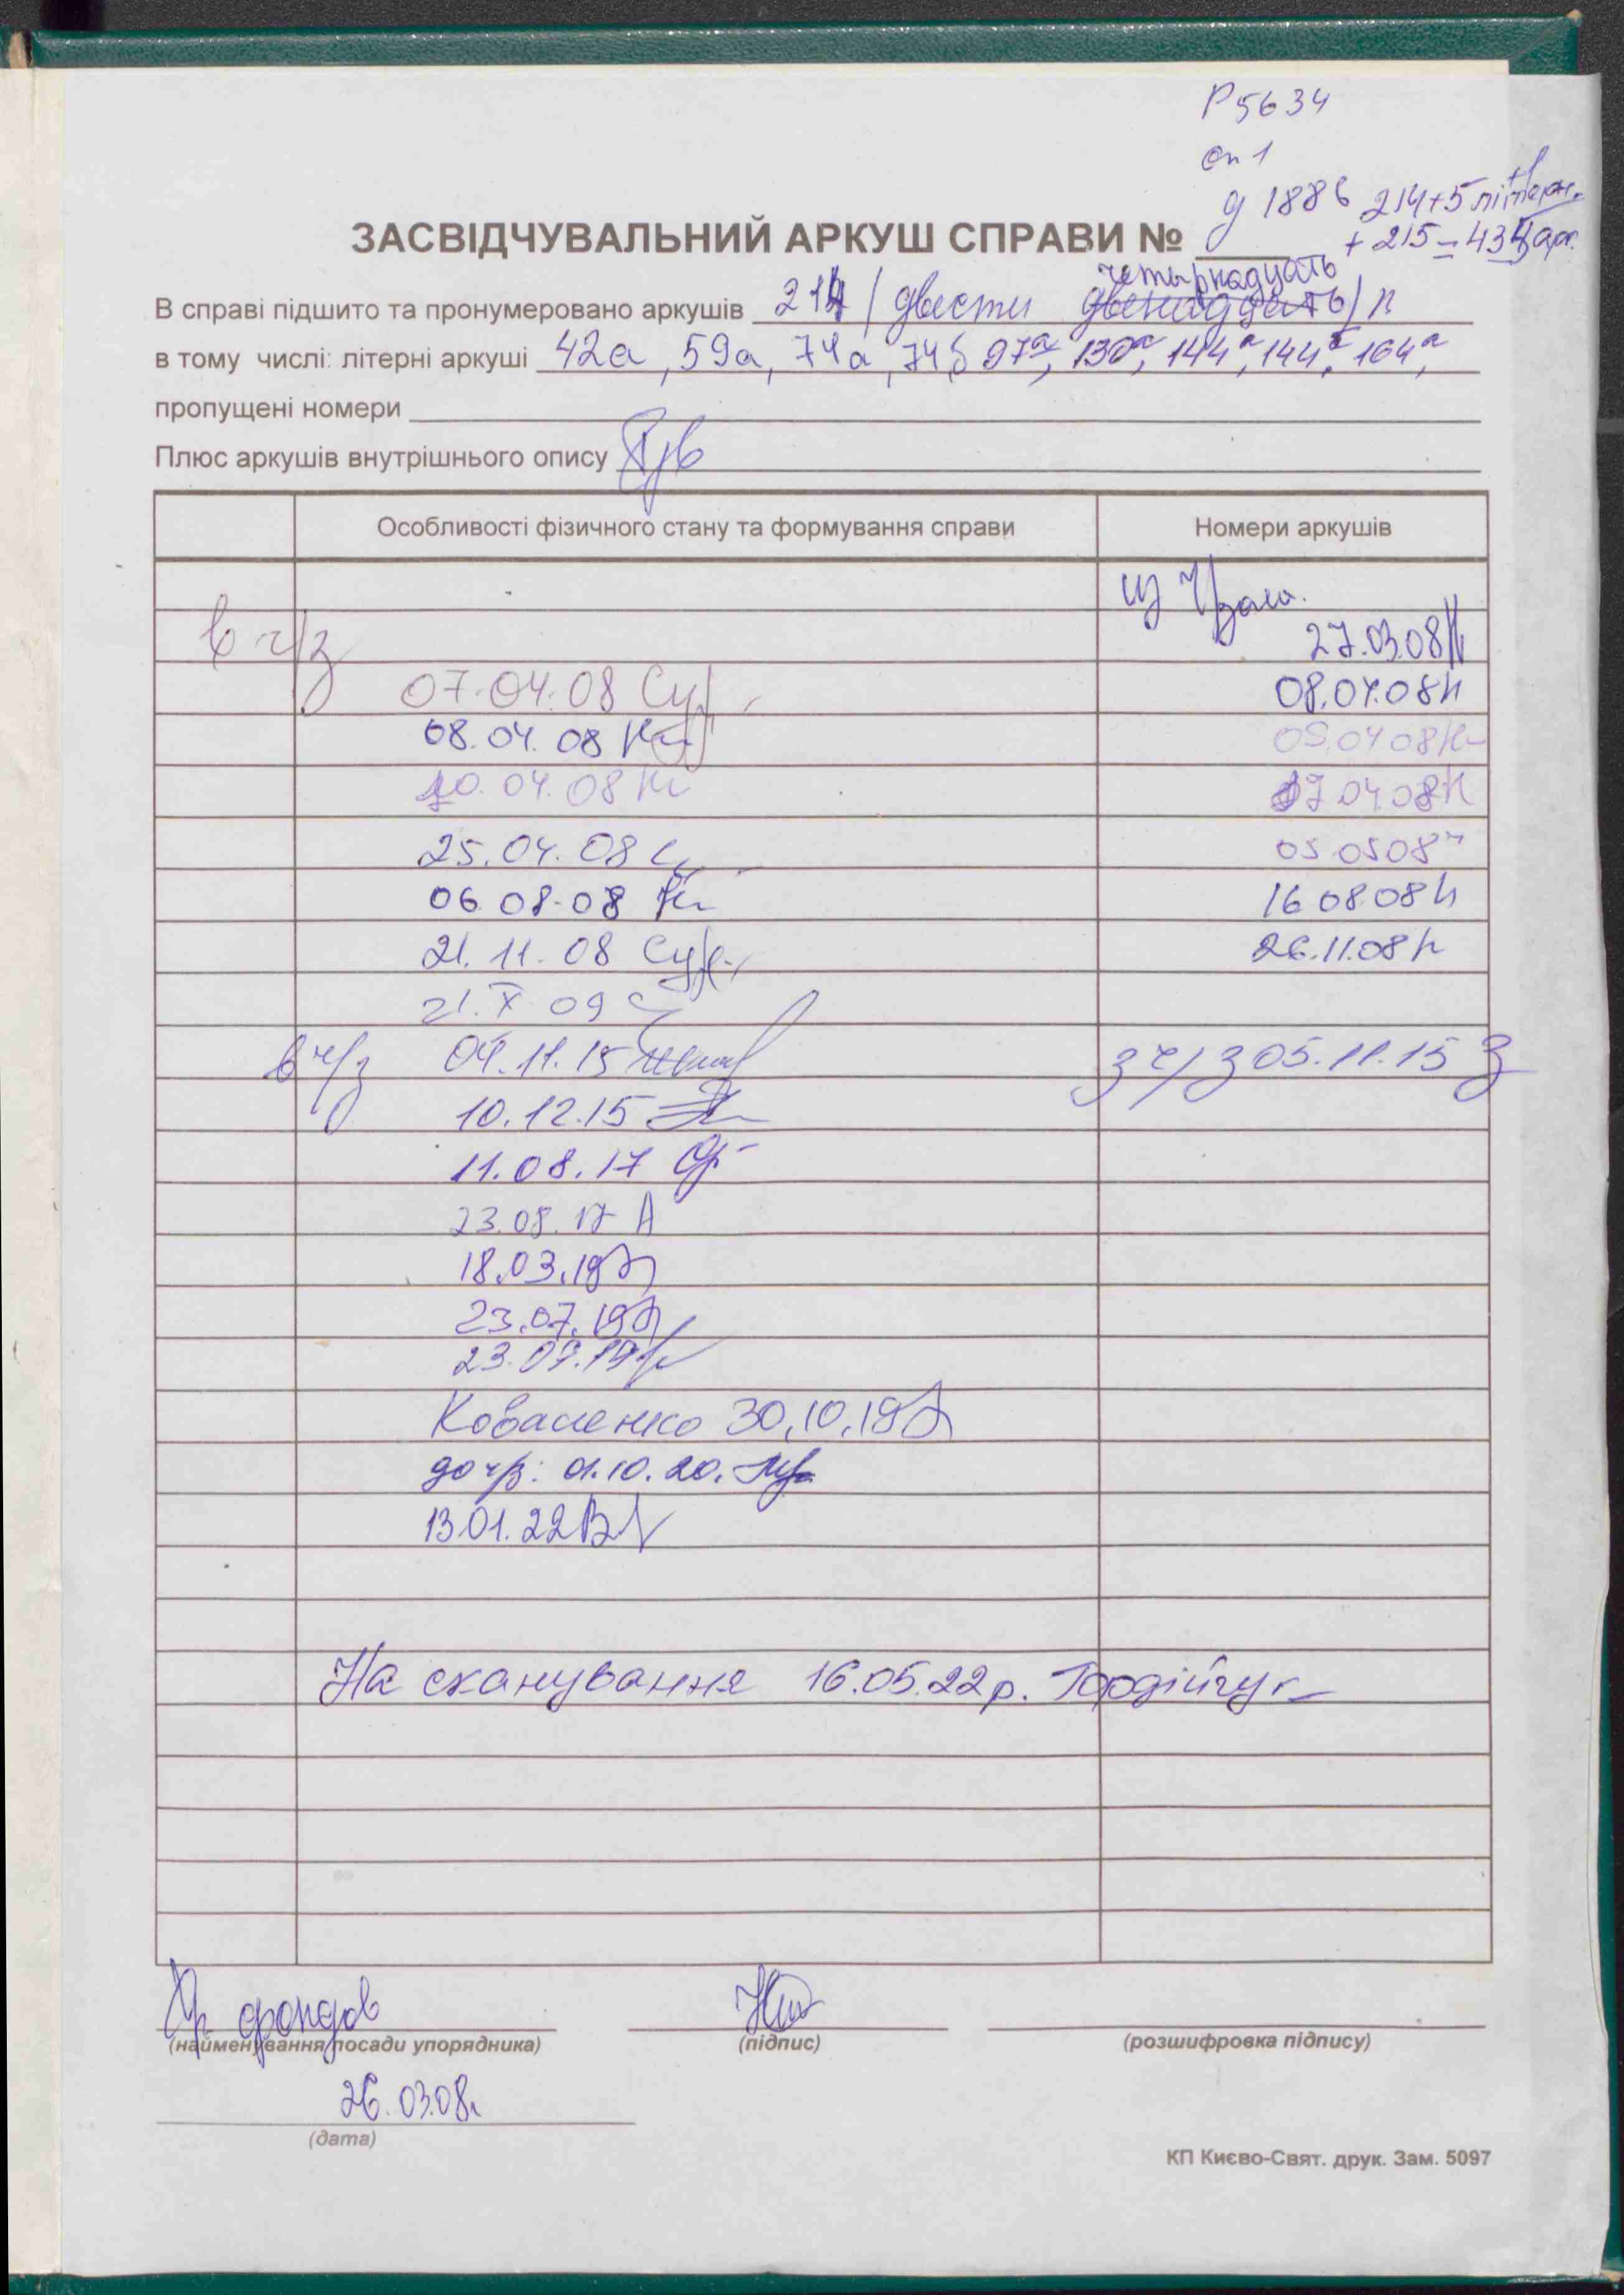 Р5634
оп 1
д 1886 214+5 літерн.
+ 215 = 434 арк.
ЗАСВІДЧУВАЛЬНИЙ АРКУШ СПРАВИ №
четырнадцать
В справі підшито та пронумеровано аркушів 214 / двести двенадцать /
в тому числі: літерні аркуші 42а, 59а, 74а, 74б 97а, 130а, 144а, 144б, 164а,
пропущені номери
Плюс аркушів внутрішнього опису
Особливості фізичного стану та формування справи Номери аркушів
из
в ч/з 27.03.08
07.04.08 08.04.08
08.04.08 09.04.08
10.04.08 17.04.08
25.04.08 05.05.08
06.08.08 16.08.08
21.11.08 26.11.08
21.X.09
в ч/з 04.11.15 з ч/з 05.11.15
10.12.15
11.08.17
23.08.17
18.03.19
23.07.19
23.09.19
Коваленко 30.10.19
до ч/з: 01.10.20.
13.01.22
На сканування 16.05.22р. Гордійчук
Хр. фондов
(найменування посади упорядника) (підпис) (розшифровка підпису)
26.03.08
(дата)
КП Києво-Свят. друк. Зам. 5097